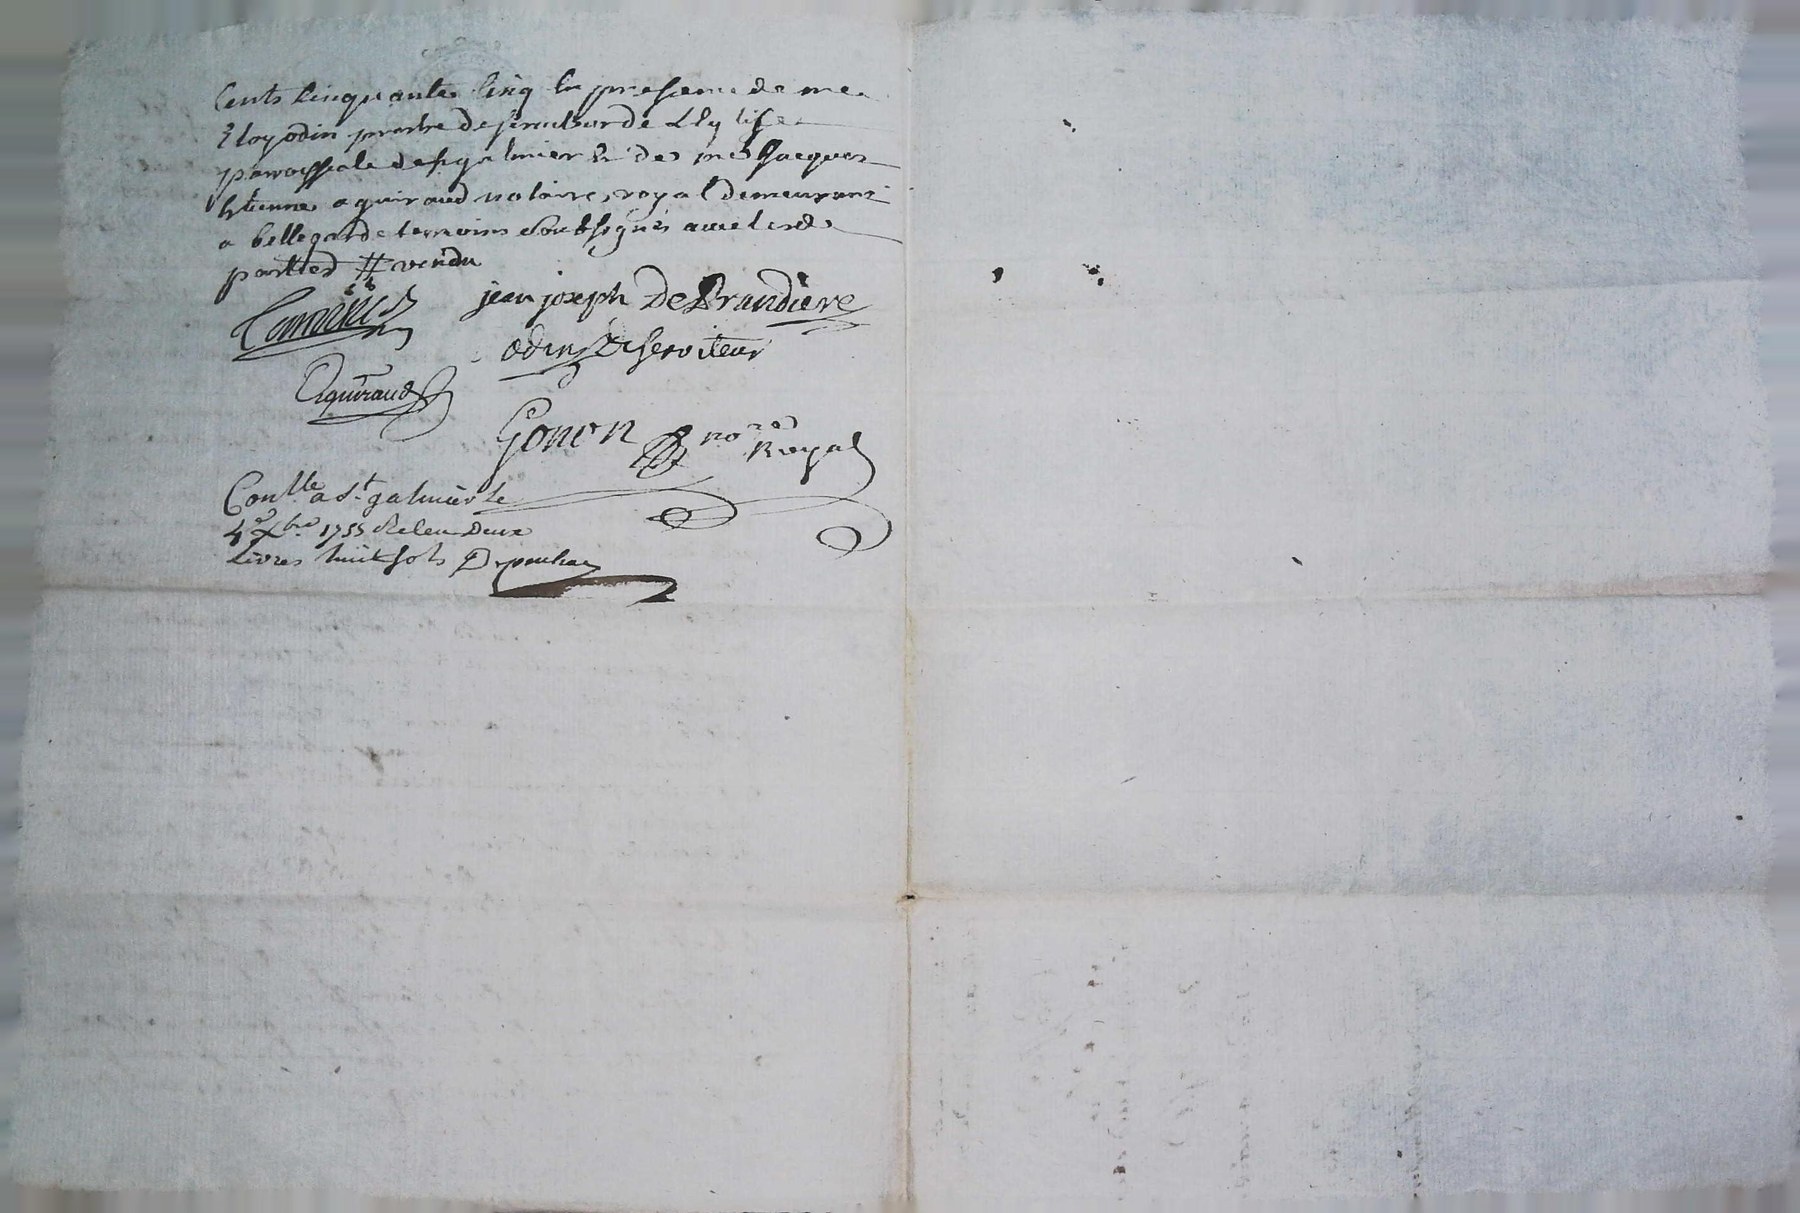 Cents Cinquante Cinq En presence de me
Eloy odin prestre desserviteur de L'Eglise
parroissiale de st galmier & de me Jacques
Etienne aguiraud notaire royal demeurant
a bellegarde temoins soubsignés avec lesd
parties # vendu
jean joseph DeBrandiere
odin Deserviteur
Aguiraud
Gonon nore Royal
Conlle a St galmier le
4e Xbre 1755 Recu Deux
Livres huit sols